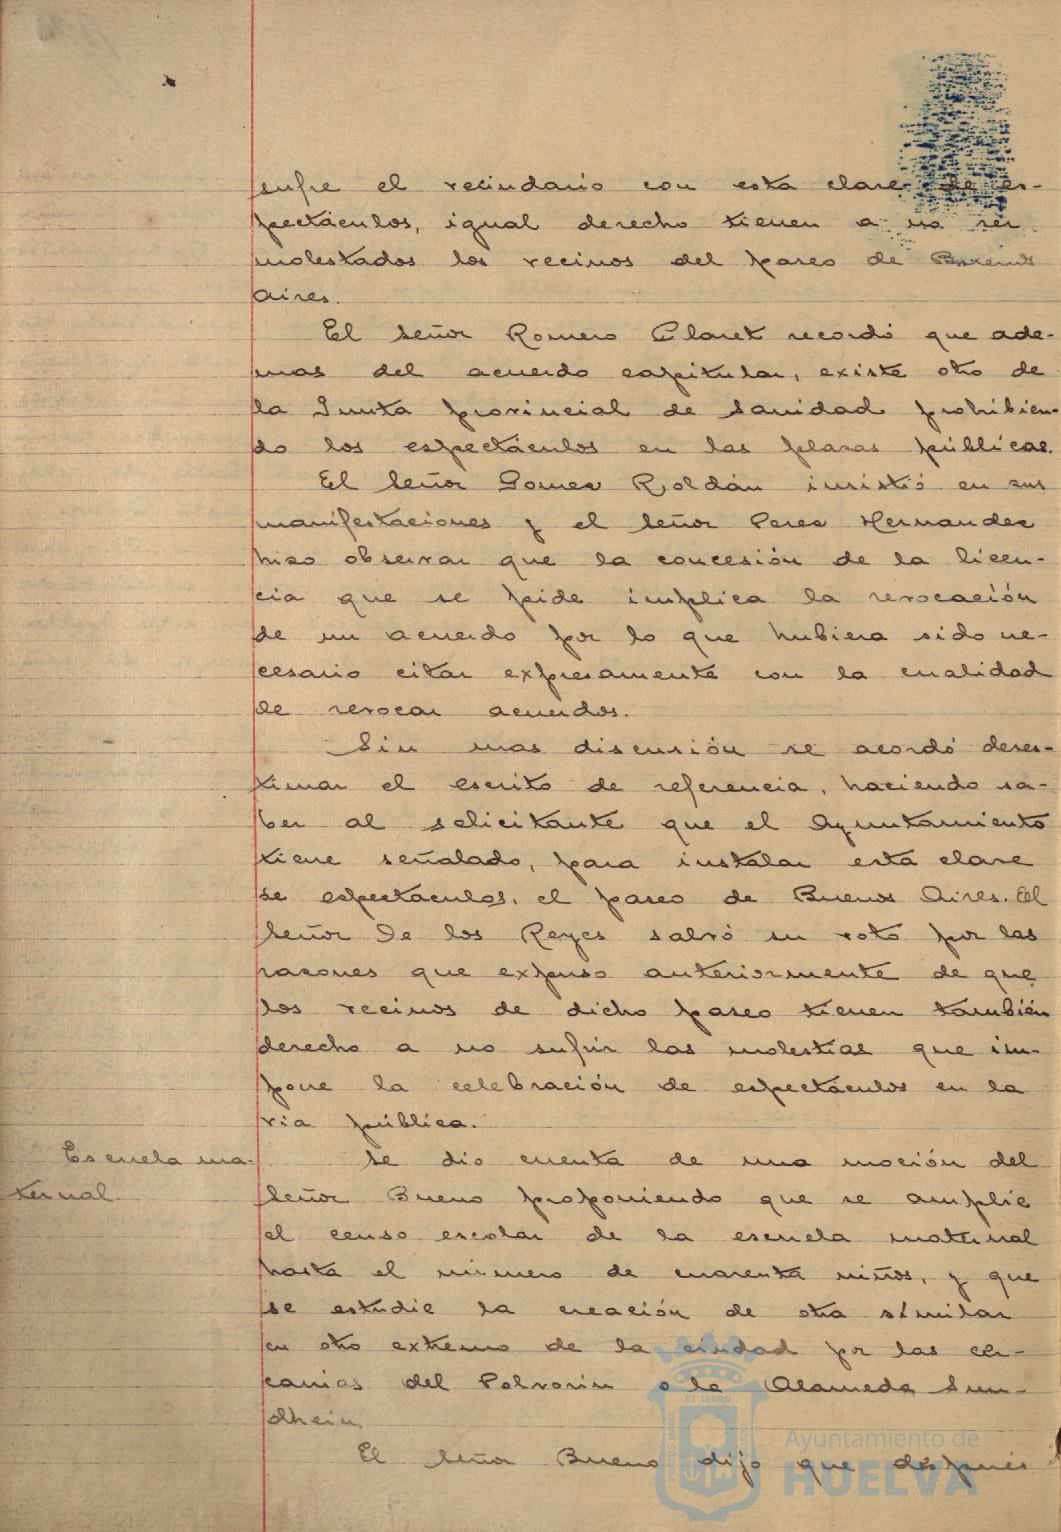 sufre el vecindario con esta clase de es-
pectáculos, igual derecho tienen a no ser
molestados los vecinos del paseo de Buenos
Aires.
El señor Romero Claret recordó que ade-
mas del acuerdo capitular, existe otro de
la Junta provincial de Sanidad prohibien-
do los espectáculos en las plazas públicas.
El señor Gomez Roldán insistió en sus
manifestaciones y el señor Perez Hernandez
hizo observar que la concesión de la licen-
cia que se pide implica la revocación
de un acuerdo por lo que hubiera sido ne-
cesario citar expresamente con la cualidad
de revocar acuerdos.
Sin mas discusión se acordó deses-
timar el escrito de referencia, haciendo sa-
ber al solicitante que el Ayuntamiento
tiene señalado, para instalar esta clase
de espectaculos, el paseo de Buenos Aires. El
señor De los Reyes salvó su voto por las
razones que expuso anteriormente de que
los vecinos de dicho paseo tienen también
derecho a no sufrir las molestias que im-
pone la celebración de espectáculos en la
via pública.
Escuela ma-
ternal.
Se dio cuenta de una moción del
señor Bueno proponiendo que se amplie
el censo escolar de la escuela maternal
hasta el número de cuarenta niños, y que
se estudie la creación de otra similar
en otro extremo de la ciudad por las cer-
canias del Polvorin o la Alameda Sun-
dhein.
El señor Bueno dijo que después
Ayuntamiento de
HUELVA